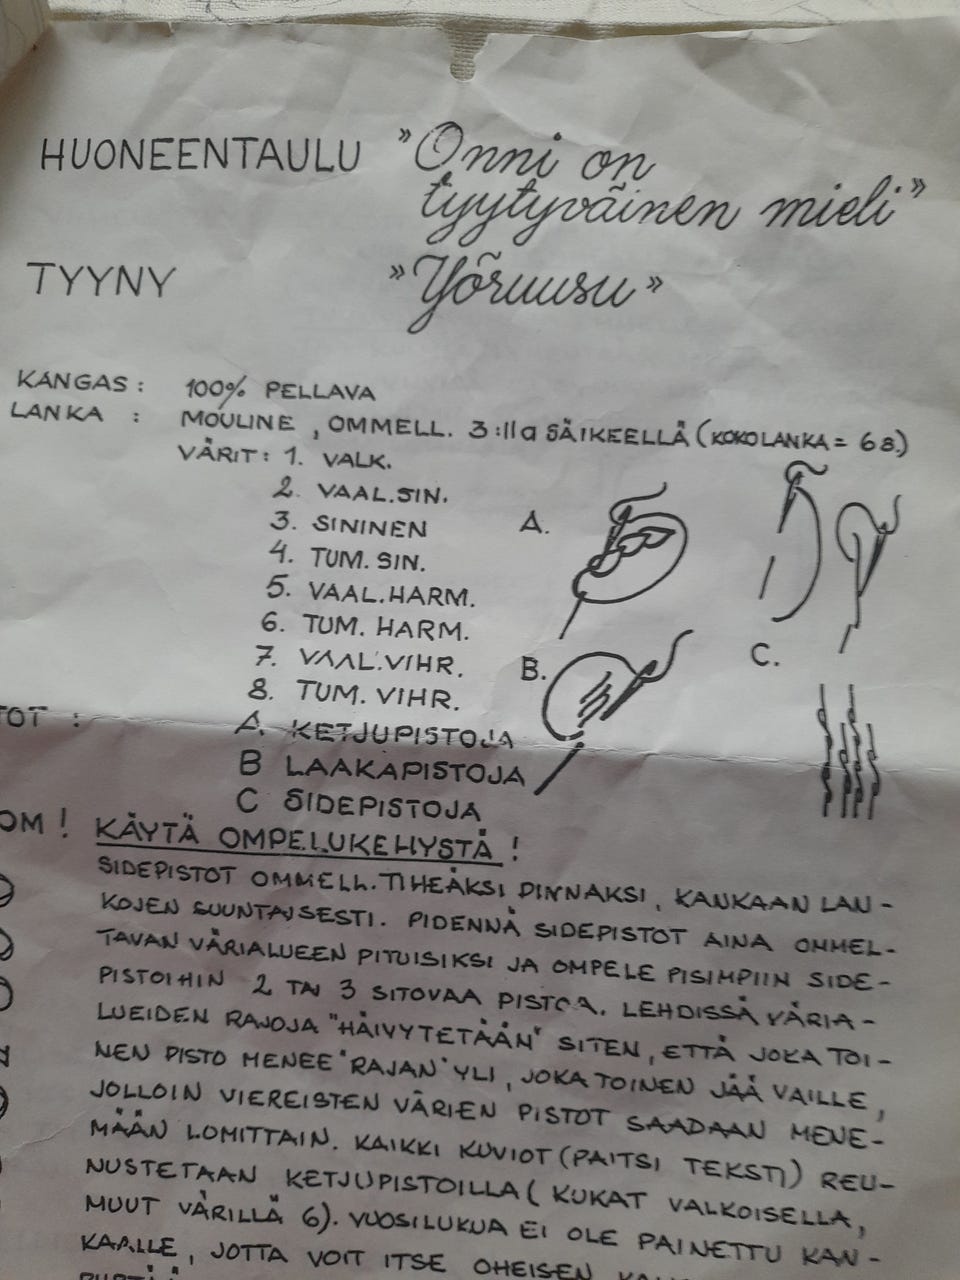 HUONEENTAULU "Onni on
tyytyväinen mieli"
TYYNY "Yöruusu"
KANGAS: 100% PELLAVA
LANKA : MOULINE, OMMELL. 3:lla SÄIKEELLÄ (KOKO LANKA = 6 S.)
VÄRIT: 1. VALK.
2. VAAL.SIN.
3. SININEN
4. TUM. SIN.
5. VAAL.HARM.
6. TUM. HARM.
7. VAAL.VIHR.
8. TUM. VIHR.
A.
B.
C.
TOT : A. KETJUPISTOJA
B LAAKAPISTOJA
C SIDEPISTOJA
OM! KÄYTÄ OMPELUKEHYSTÄ!
SIDEPISTOT OMMELL. TIHEÄKSI PINNAKSI, KANKAAN LAN-
KOJEN SUUNTAISESTI. PIDENNÄ SIDEPISTOT AINA OMMEL-
TAVAN VÄRIALUEEN PITUISIKSI JA OMPELE PISIMPIIN SIDE-
PISTOIHIN 2 TAI 3 SITOVAA PISTOA. LEHDISSÄ VÄRIA-
LUEIDEN RAJOJA "HÄIVYTETÄÄN" SITEN, ETTÄ JOKA TOI-
NEN PISTO MENEE "RAJAN" YLI, JOKA TOINEN JÄÄ VAILLE,
JOLLOIN VIEREISTEN VÄRIEN PISTOT SAADAAN MENE-
MÄÄN LOMITTAIN. KAIKKI KUVIOT (PAITSI TEKSTI) REU-
NUSTETAAN KETJUPISTOILLA (KUKAT VALKOISELLA,
MUUT VÄRILLÄ 6). VUOSILUKUA EI OLE PAINETTU KAN-
KAALLE, JOTTA VOIT ITSE OHEISEN